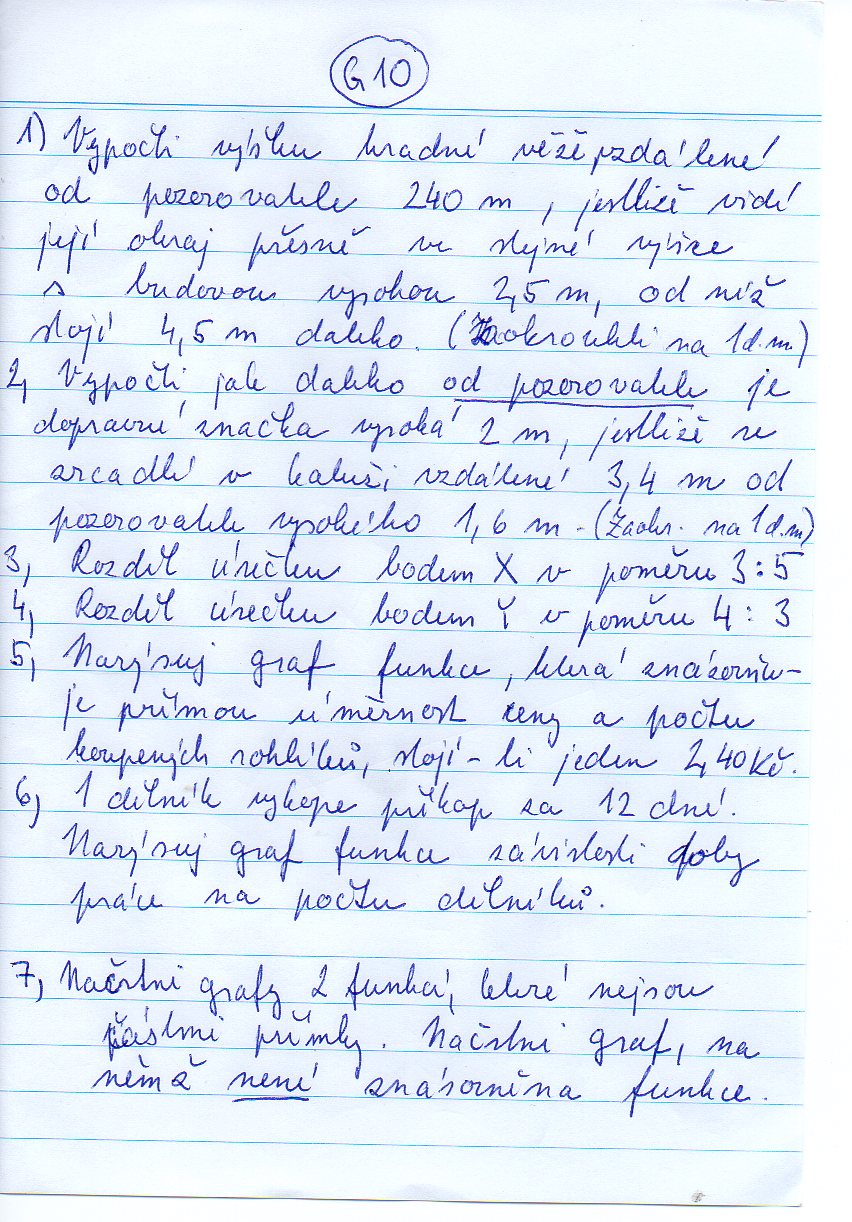 G10
1) Vypočti výšku hradní věže vzdálené
od pozorovatele 240 m, jestliže vidí
její okraj přesně ve stejné výšce
s budovou vysokou 2,5 m, od níž
stojí 4,5 m daleko. (Zaokrouhli na 1 d.m)
2, Vypočti, jak daleko od pozorovatele je
dopravní značka vysoká 2 m, jestliže se
zrcadlí v kaluži vzdálené 3,4 m od
pozorovatele vysokého 1,6 m - (Zaokr. na 1 d.m)
3, Rozděl úsečku bodem X v poměru 3:5
4, Rozděl úsečku bodem Y v poměru 4:3
5, Narýsuj graf funkce, která znázorňu-
je přímou úměrnost ceny a počtu
koupených rohlíků, stojí-li jeden 2,40 Kč.
6, 1 dělník vykope příkop za 12 dní.
Narýsuj graf funkce závislosti doby
práce na počtu dělníků.
7, Načrtni grafy 2 funkcí, které nejsou
částmi přímky. Načrtni graf, na
němž není znázorněna funkce.